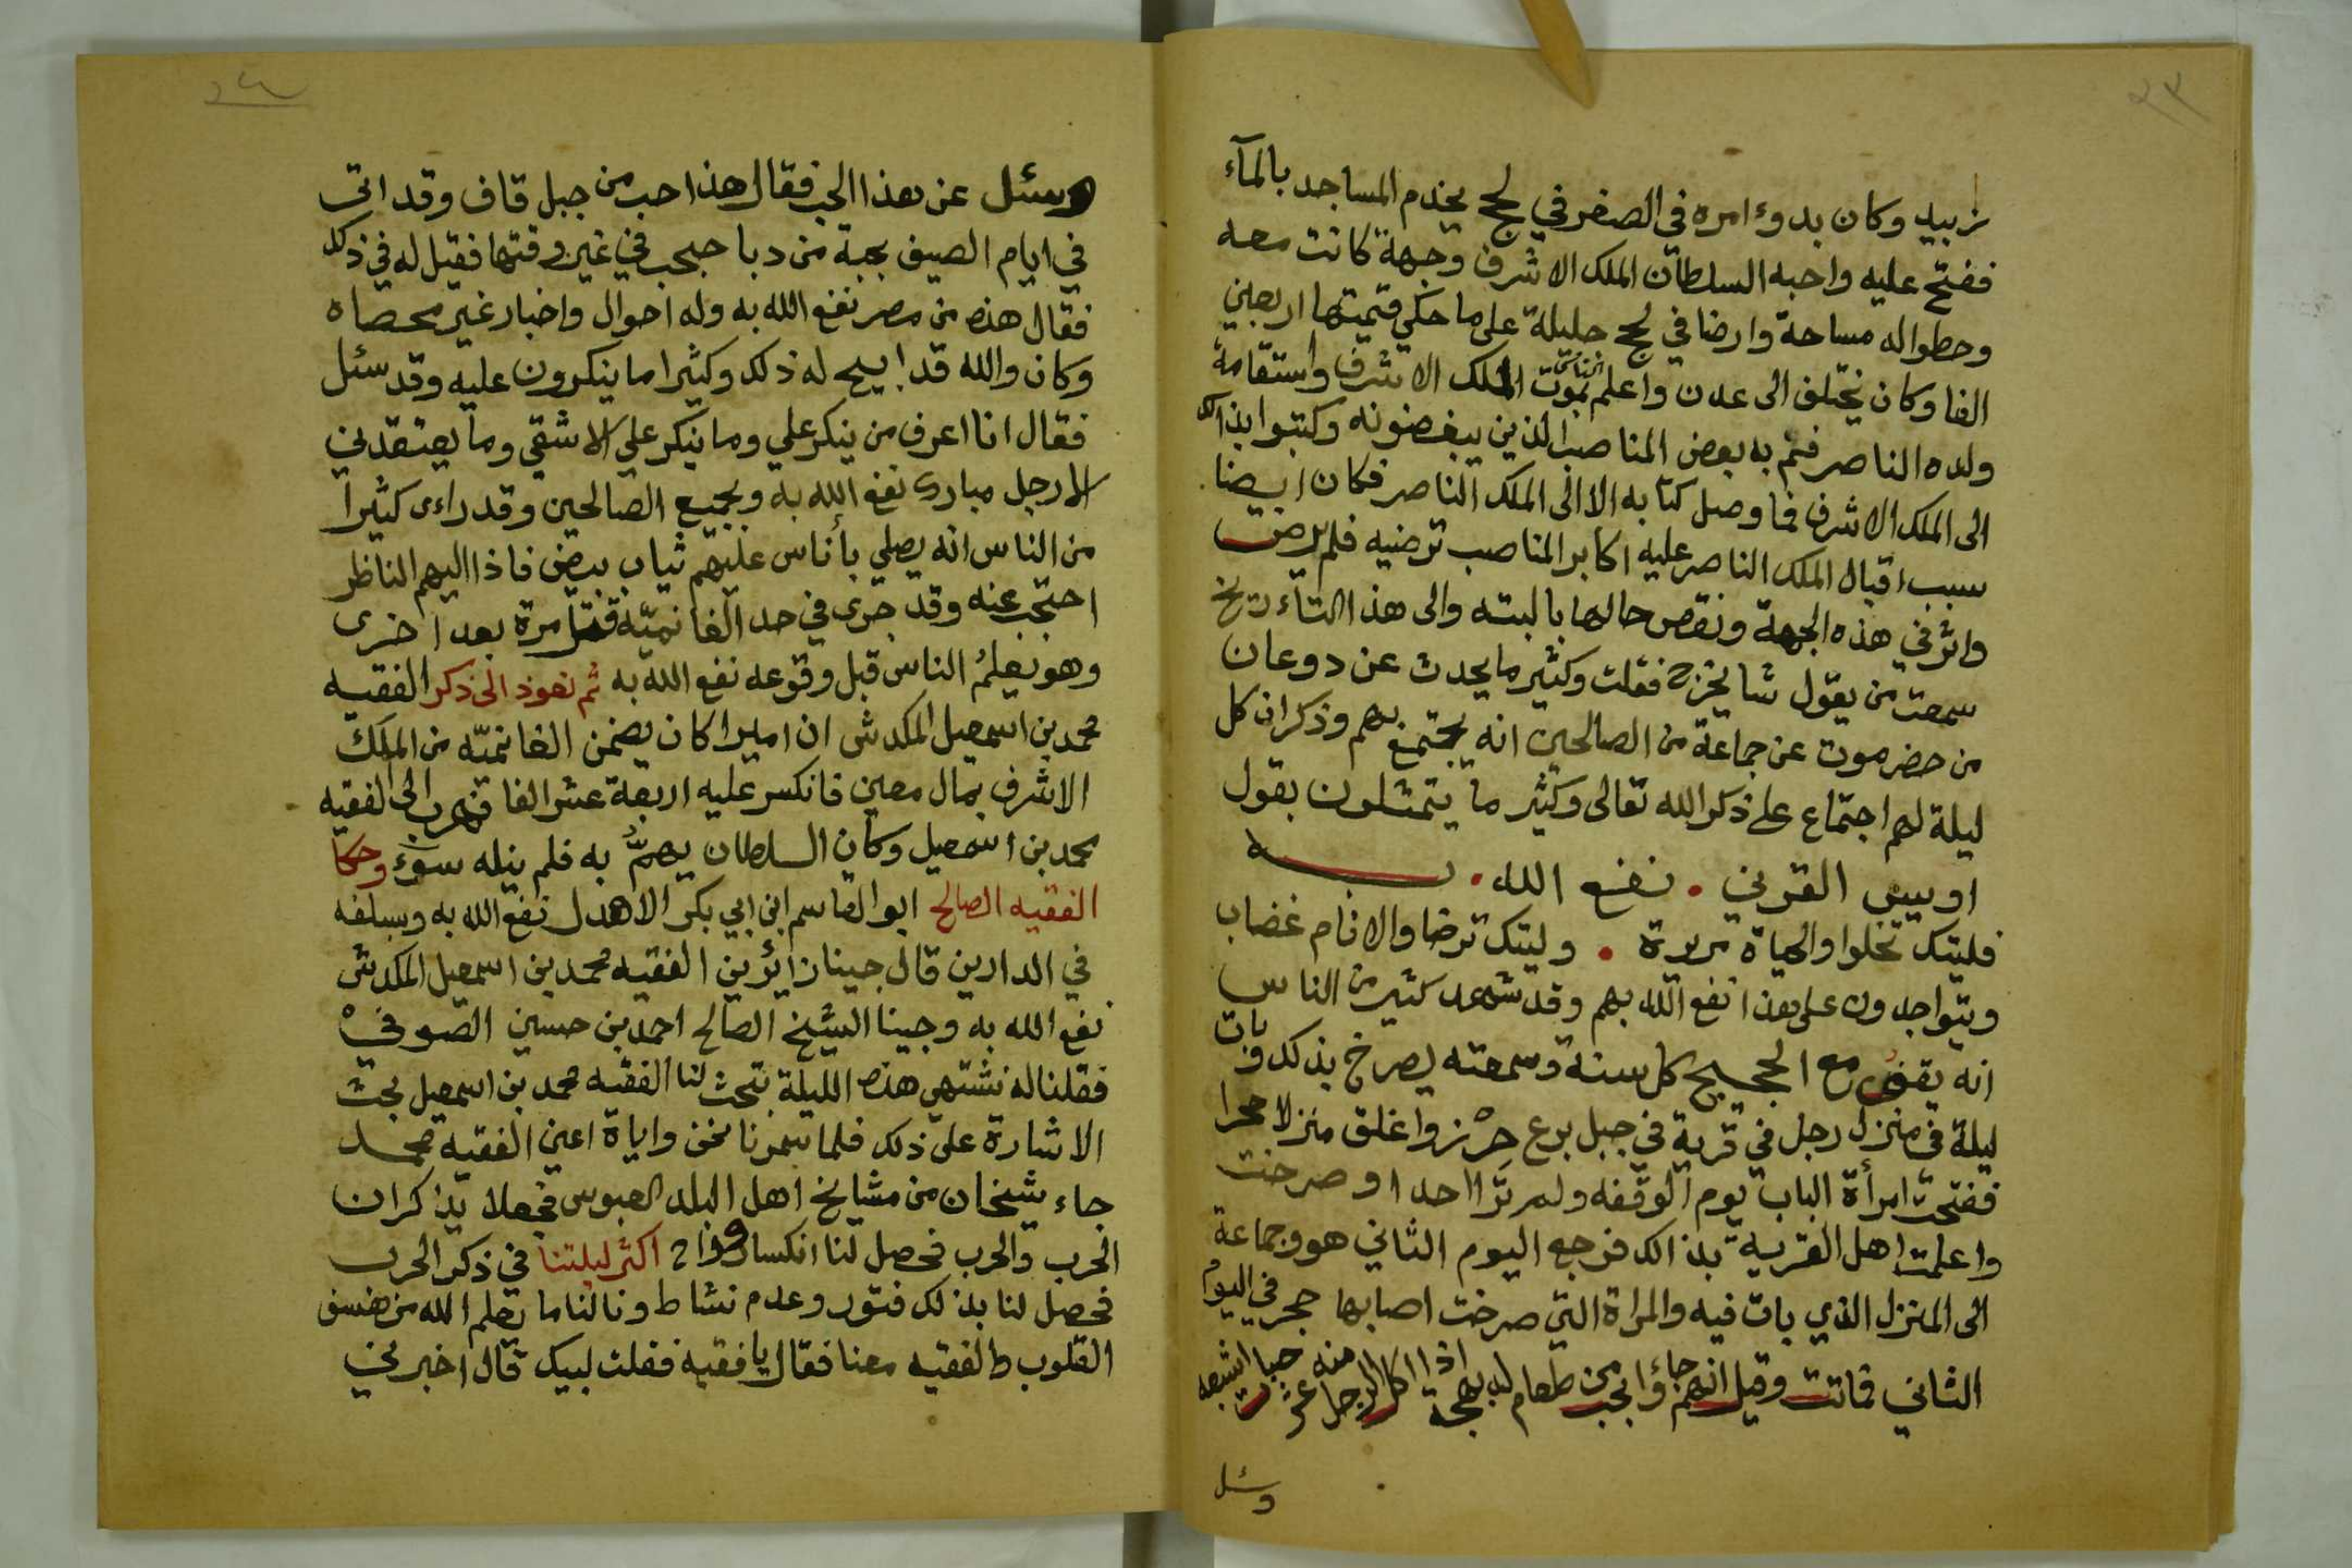 ٢٣
زبيد وكان بدوء امره في الصغر في لحج يخدم المساجد بالمآء
ففتح عليه واحبه السلطان الملك الاشرف وجهة كانت معه
وحطوا له مساحة وارضا في لحج جليلة على ما حكي قيمتها اربعين
الفا وكان يختلف الى عدن واعلم الناس بموت الملك الاشرف واستقامة
ولده الناصر فنم به بعض المناصب الذين يبغضونه وكتبوا بذالك
الى الملك الاشرف فما وصل كتابه الا الى الملك الناصر فكان ايضا
سبب اقبال الملك الناصر عليه اكابر المناصب ترضيه فلم يرض
واثر في هذه الجهة ونقص حالها بالبته والى هذا التاءريخ
سمعت من يقول شا يخرج فقلت وكثير ما يحدث عن دوعان
من حضرموت عن جماعة من الصالحين انه يجتمع بهم وذكر ان كل
ليلة لهم اجتماع على ذكر الله تعالى وكثير ما يتمثلون بقول
اويس القرني . نفع الله . به
فليتك تحلوا والحياة مريرة . وليتك ترضا والانام غضاب
ويتواجدون على هذا نفع الله بهم وقد شهد كثير من الناس
انه يقف مع الحجيج كل سنة وسمعته يصرخ بذلك وبات
ليلة في منزل رجل في قرية في جبل برع حرز واغلق منزلا
ففتحت امرأة الباب يوم الوقفه ولم تر احدا وصرخت
واعلمت اهل القرية بذالك فرجع اليوم الثاني هو وجماعة
الى المنزل الذي بات فيه والمراة التي صرخت اصابها حجر في اليوم
الثاني فماتت وقيل انهم جاؤا بحب طعام له بهجة اذا اكل الرجل منه حبات اشبعه
وسئل
٢٤
وسئل عن هذا الحب فقال هذا حب من جبل قاف وقد اتى
في ايام الصيف بجبة من دبا حبحب في غير وقتها فقيل له في ذلك
فقال هذه من مصر نفع الله به وله احوال واخبار غير محصاه
وكان والله قد ابيح له ذلك وكثيرا ما ينكرون عليه وقد سئل
فقال انا اعرف من ينكر علي وما ينكر علي الا شقي وما يعتقدني
الا رجل مبارك نفع الله به وبجميع الصالحين وقد راءى كثيرا
من الناس انه يصلي بأناس عليهم ثياب بيض فاذا اليهم الناظر
احتجب عنه وقد جرى في حد الغانميّه قتل مرة بعد اخرى
وهو يعلمُ الناس قبل وقوعه نفع الله به ثم نعوذ الى ذكر الفقيه
محمد بن اسمعيل المكدش ان اميرا كان يضمن الغانميّه من الملك
الاشرف بمال معين فانكسر عليه اربعة عشر الفا فهرب الى الفقيه
محمد بن اسمعيل وكان السلطان يهمُّ به فلم ينله سوء وحكا
الفقيه الصالح ابو القاسم ابن ابي بكر الاهدل نفع الله به وبسلفه
في الدارين قال جينا زائرين الفقيه محمد بن اسمعيل المكدش
نفع الله به وجينا الشيخ الصالح احمد بن حسين الصوفي
فقلنا له نشتهي هذه الليلة بتحث لنا الفقيه محمد بن اسمعيل بحث
الاشارة على ذلك فلما سمرنا نحن واياة اعين الفقيه محمد
جاء شيخان من مشايخ اهل البلد العبوس فجعلا يذكران
الحرب والحرب فحصل لنا انكسار وراح اكثر ليلتنا في ذكر الحرب
فحصل لنا بذلك فتور وعدم نشاط ونالنا ما يعلم الله من
القلوب والفقيه معنا فقال يا فقيه فقلت لبيك قال اخبرني